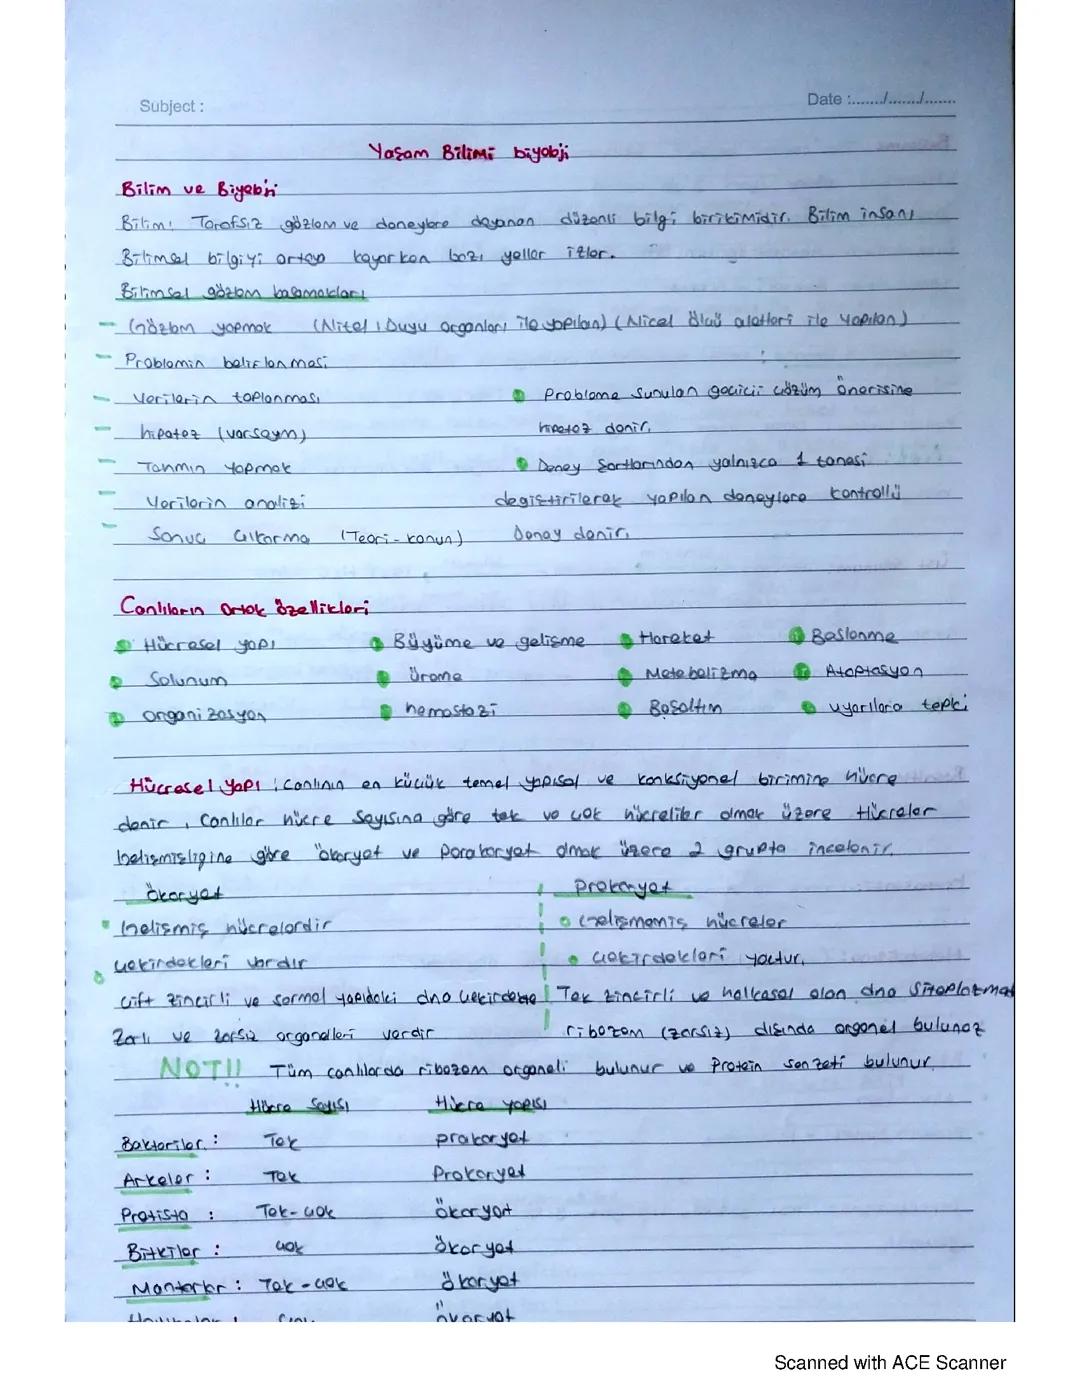 Subject :
Date :......./......./.......
Yaşam Bilimi biyoloji
Bilim ve Biyoloji
Bilim: Tarafsız gözlem ve deneylere dayanan düzenli bilgi birikimidir. Bilim insanı
Bilimsel bilgiyi ortaya koyarken bazı yollar izler.
Bilimsel gözlem basamakları
- Gözlem yapmak (Nitel: Duyu organları ile yapılan) (Nicel ölçü aletleri ile yapılan)
- Problemin belirlenmesi
- Verilerin toplanması
Probleme sunulan geçici çözüm önerisine
- hipotez (varsayım)
hipotez denir.
- Tahmin yapmak
Deney Şartlarından yalnızca 1 tanesi
- Verilerin analizi
değiştirilerek yapılan deneylere kontrollü
- Sonuç Çıkarma (Teori-kanun)
Deney denir.
Canlıların Ortak özellikleri
Hücresel yapı Büyüme ve gelişme Hareket Beslenme
Solunum Üreme Metabolizma Adaptasyon
organizasyon hemostazi Boşaltım uyarılara tepki
Hücresel yapı : Canlının en küçük temel yapısal ve fonksiyonel birimine hücre
denir, Canlılar hücre Sayısına göre tek ve çok hücreliler olmak üzere Hücreler
Gelişmişliğine göre ökaryot ve Parakaryot olmak üzere 2 grupta incelenir.
ökaryot
Prokaryot
Gelişmiş hücrelerdir
Gelişmemiş hücreler
çekirdekleri vardır
çekirdekleri yoktur.
Çift zincirli ve sarmal yapıdaki dna çekirdekte
Tek zincirli ve halkasal olan dna Sitoplazmada
Zarlı ve zarsız organelleri vardır
ribozom (zarsız) dışında organel bulunmaz
NOT!! Tüm canlılarda ribozom organeli bulunur ve Protein sentezi bulunur.
Hücre Sayısı Hücre yapısı
Bakteriler : Tek prokaryot
Arkeler : Tek Prokaryot
Protista : Tek-çok ökaryot
Bitkiler : çok ökaryot
Mantarlar : Tek-çok ökaryot
ökaryot
Scanned with ACE Scanner